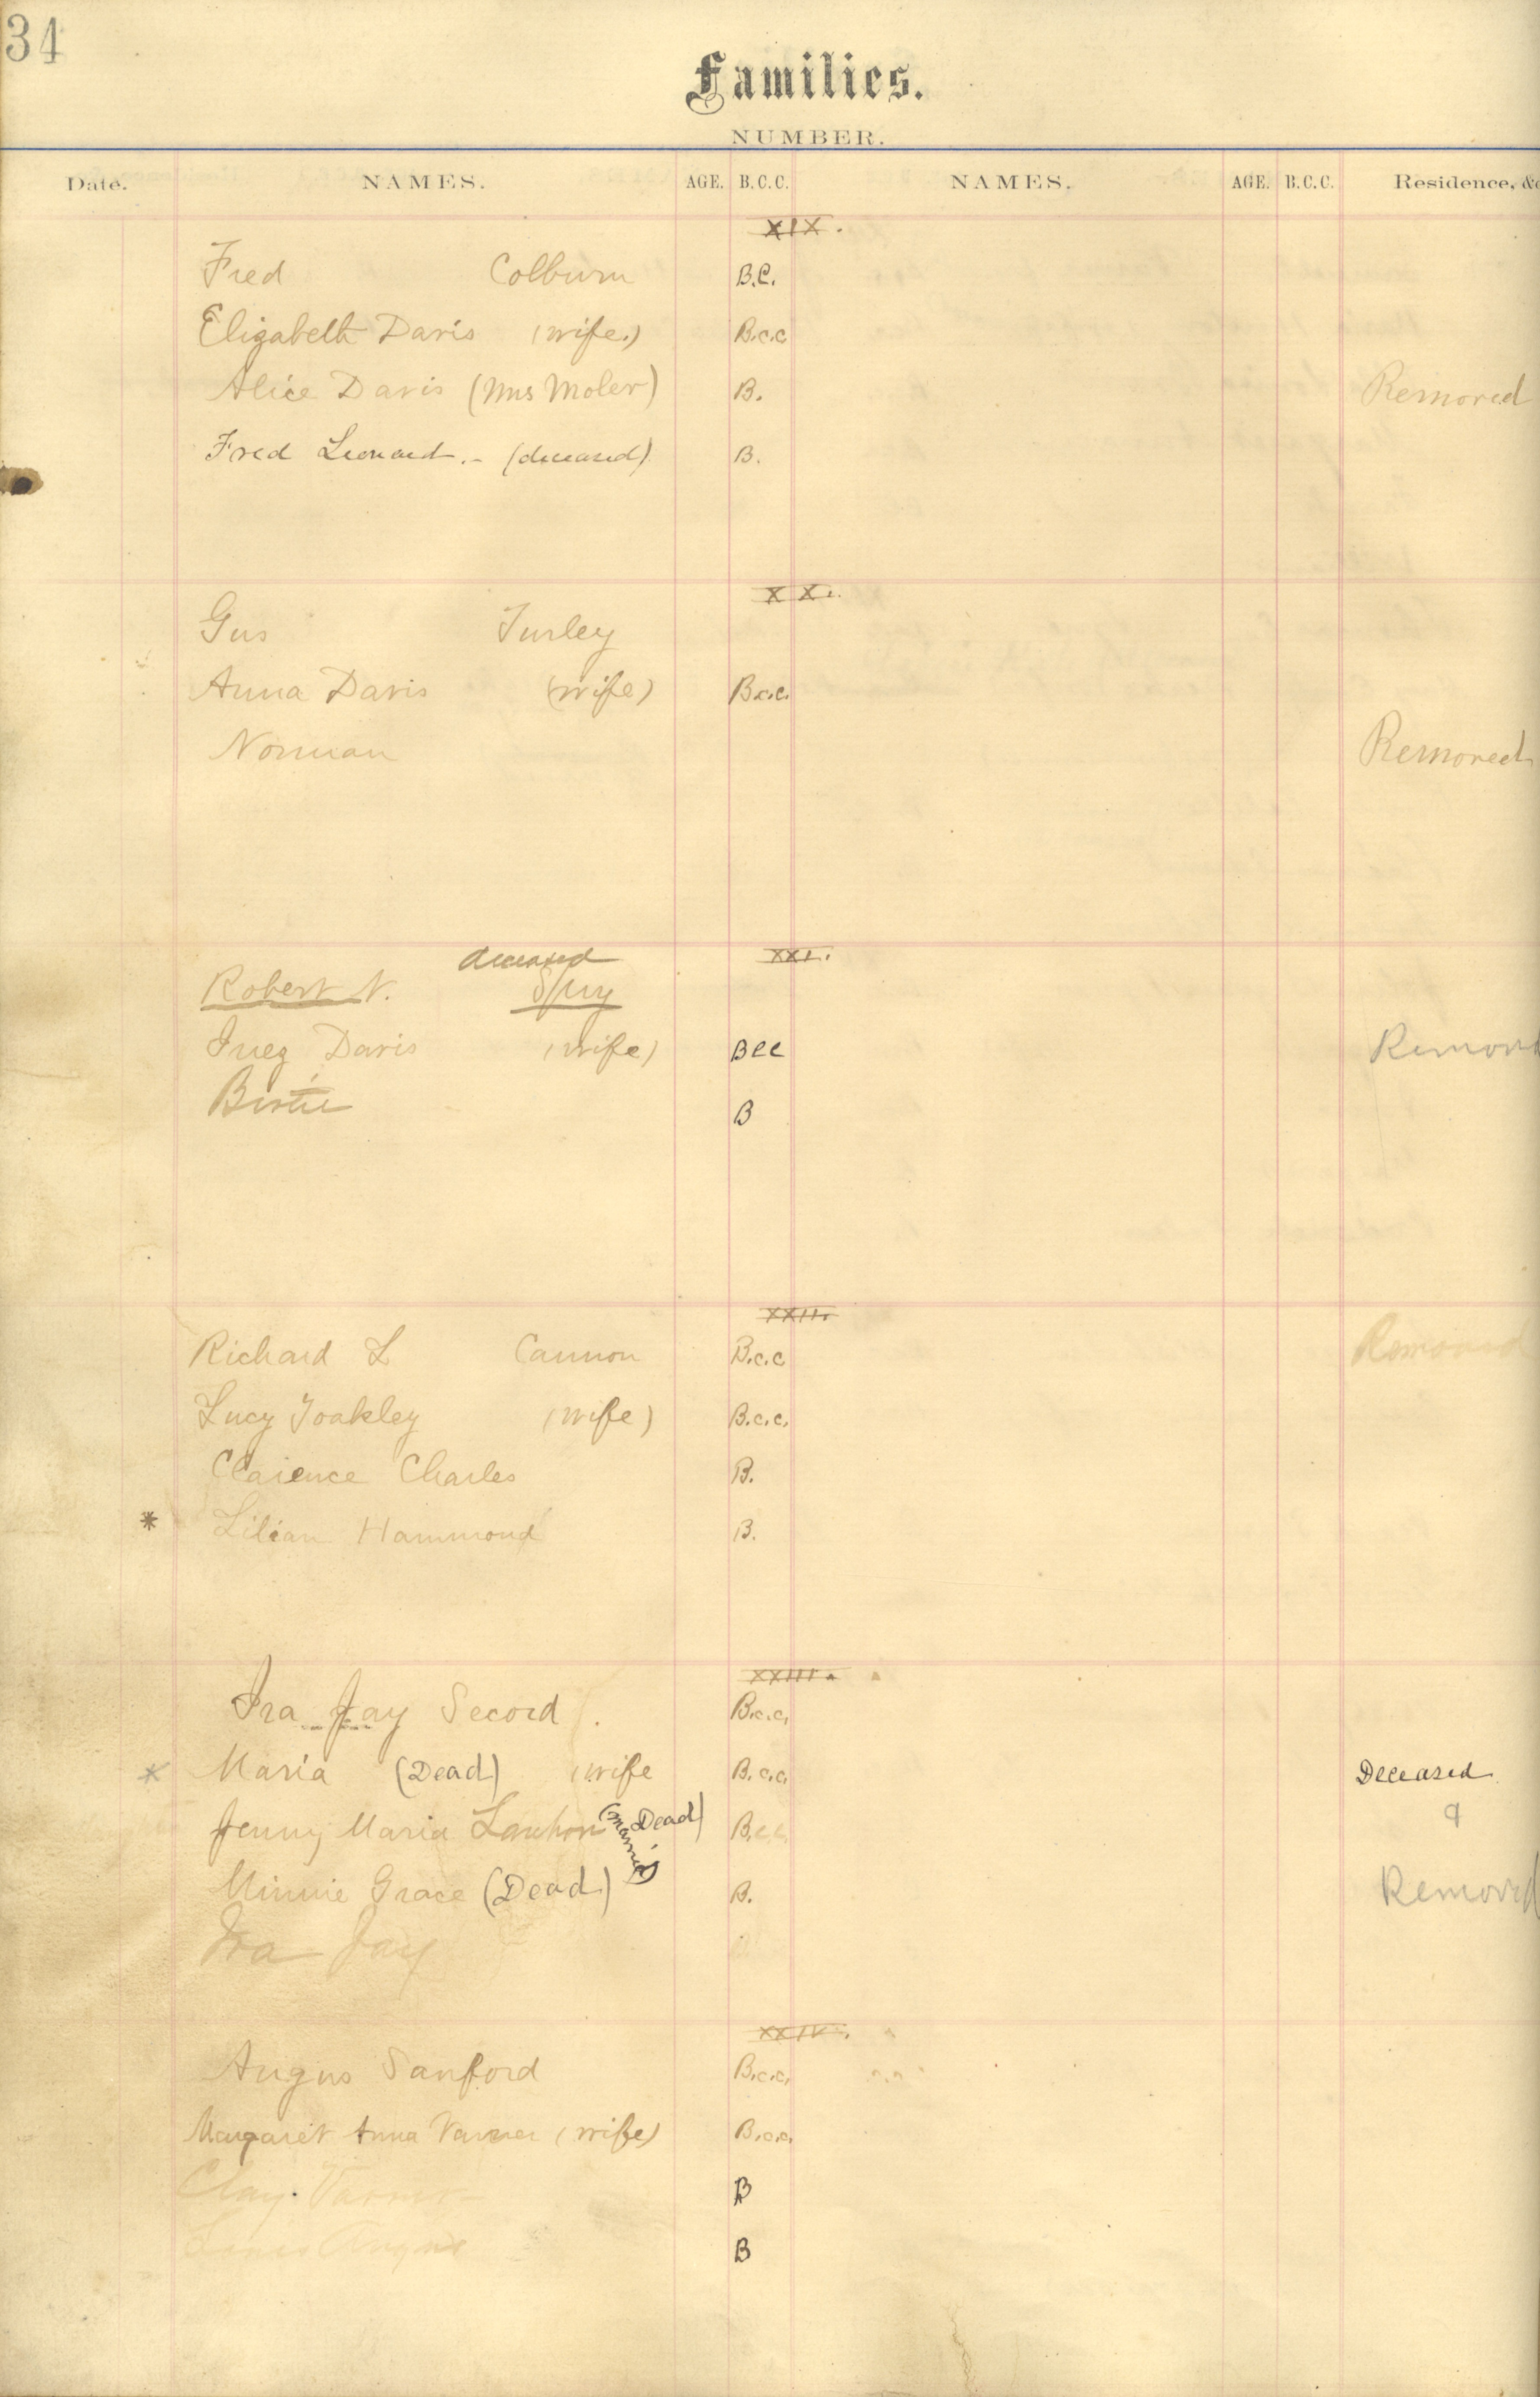 34
Families.
NUMBER.
Date. NAMES. AGE. B.C.C. NAMES. AGE. B.C.C. Residence, &c
XIX.
Fred Colburn B.C.
Elizabeth Davis (wife.) B.c.c
Alice Davis (Mrs Moler) B. Removed
Fred Leonard.- (deceased) B.
XX.
Gus Turley
Anna Davis (wife) B.c.c.
Norman Removed
XXI.
deceased
Robert N. Spry
Inez Davis (wife) BCC Removed
Bertie B
XXII.
Richard L Cannon B.c.c Removed
Lucy Yoakley (wife) B.c.c.
Clarence Charles B.
* Lilian Hammond B.
XXIII.
Ira Jay Secord. B.c.c.
* Maria (Dead) (wife B.c.c. Deceased
Jenny Maria (married Dead) B.c.c.
Minnie Grace (Dead) B. Removed
Ira Jay
XXIV.
Angus Sanford B.c.c.
Margaret Anna Varner (wife) B.c.c.
Clay Varner B
Angus B